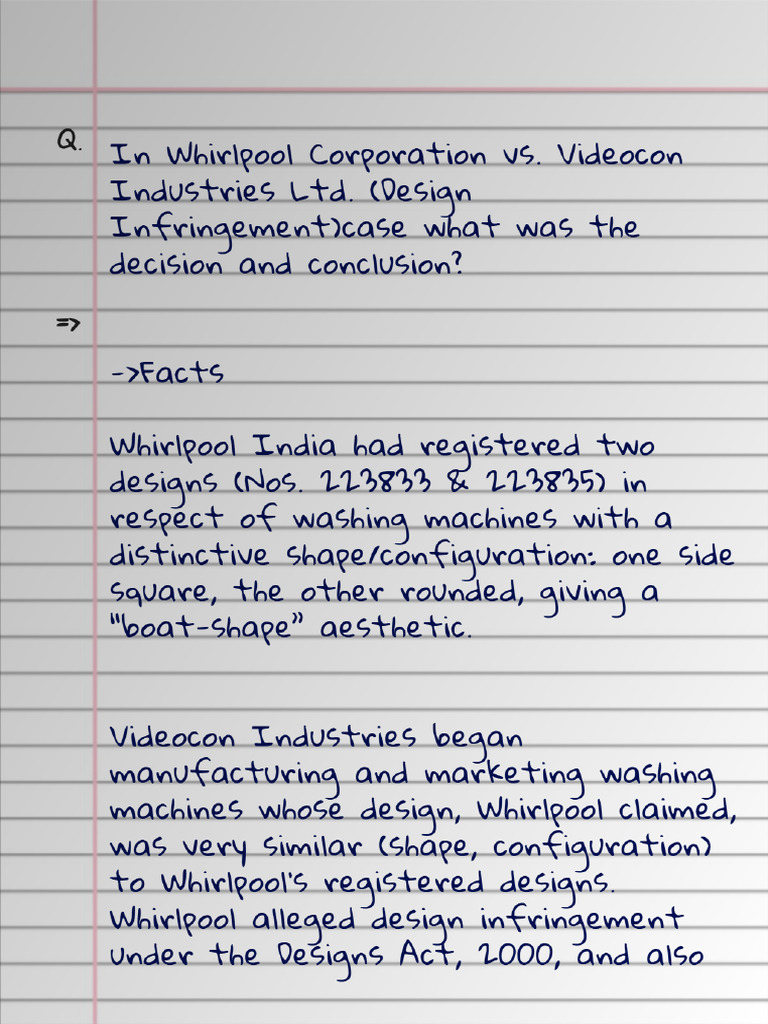 Q.
In Whirlpool Corporation vs. Videocon
Industries Ltd. (Design
Infringement)case what was the
decision and conclusion?
=>
->Facts
Whirlpool India had registered two
designs (Nos. 223833 & 223835) in
respect of washing machines with a
distinctive shape/configuration: one side
square, the other rounded, giving a
"boat-shape” aesthetic.
Videocon Industries began
manufacturing and marketing washing
machines whose design, Whirlpool claimed,
was very similar (shape, configuration)
to Whirlpool's registered designs.
Whirlpool alleged design infringement
under the Designs Act, 2000, and also